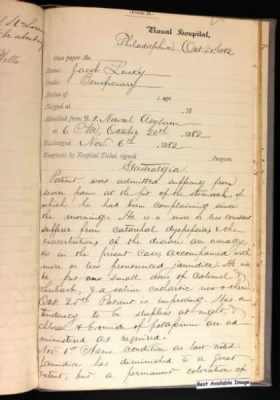 (Form X.)
Naval Hospital,
Philadelphia Oct 20 1882
Case paper No.
Name: Jacob
Rank: Beneficiary
Native of ; age
Shipped at , 18
Admitted from U.S. Naval Asylum
at 6 P.M. October 20th, 1882
Discharged Nov. 6th, 1882
Diagnosis by Hospital Ticket, signed Surgeon.
Gastralgia
Patient was admitted suffering from
severe pain at the pit of the stomach of
which he had been complaining since
the morning. He is a more or less constant
sufferer from catarrhal dyspepsia & the
exacerbations of the disease are usually
as in the present case accompanied with
more or less pronounced jaundice. He was
put small doses of Calomel &
rhubarb, & a saline cathartic now & then
Oct 25th Patient is improving. Has a
tendency to be sleepless at night, &
chloral & bromide of potassium are ad-
ministered as required.
Nov. 1st Same condition as last noted.
Jaundice has diminished to a great
extent, but a permanent coloration of
Best Available Image